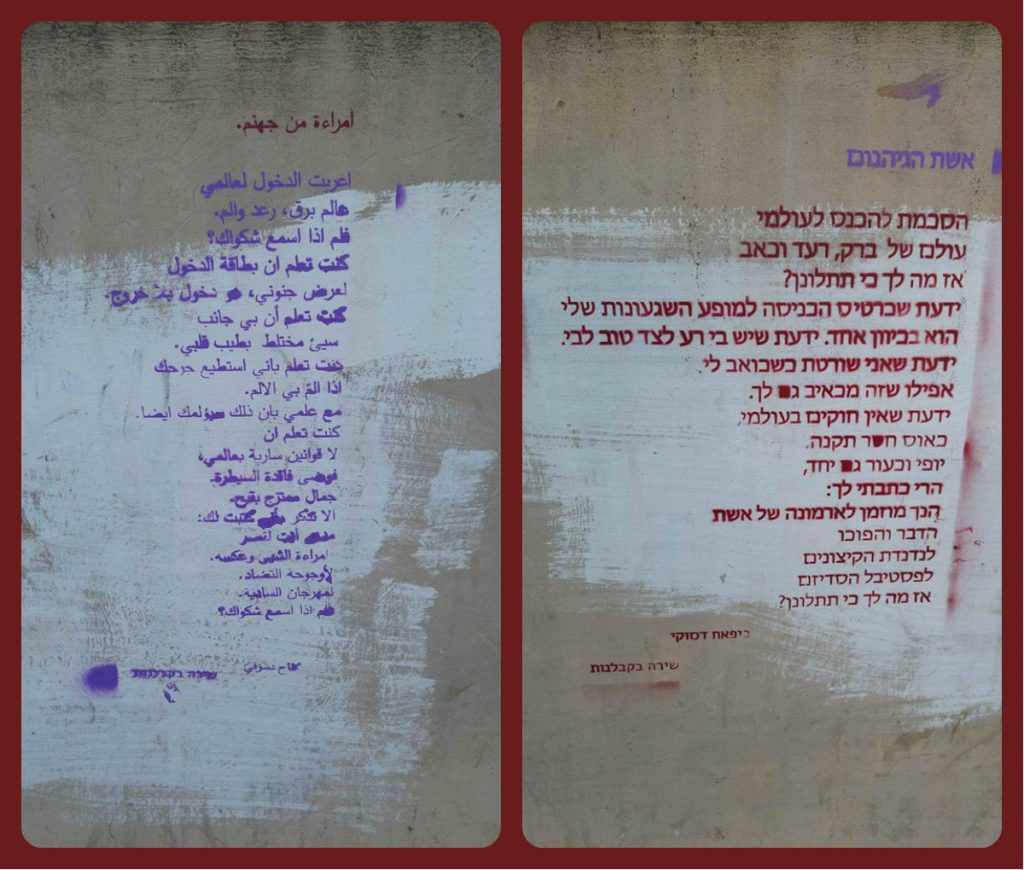 امراءة من جهنم.
اعربت الدخول لعالمي
عالم برق، رعد والم.
فلم اذا اسمع شكواك؟
كنت تعلم ان بطاقة الدخول
لعرض جنوني، هو دخول بلا خروج.
كنت تعلم أن بي جانب
سيئ مختلط بطيب قلبي.
كنت تعلم باني استطيع جرحك
اذا المّ بي الالم.
مع علمي بان ذلك سيؤلمك ايضا.
كنت تعلم ان
لا قوانين سارية بعالمي،
فوضى فاقدة السيطرة.
جمال ممتزج بقبح.
الا تذكر بأني كتبت لك:
أنت لقصر
امراءة الشيئ وعكسه.
لأرجوحة التضاد.
لمهرجان السادية.
فلم اذا اسمع شكواك؟
دسوقي
שירה בקבלנות
אשת הגיהנום
הסכמת להכנס לעולמי
עולם של ברק, רעד וכאב
אז מה לך כי תתלונן?
ידעת שכרטיס הכניסה למופע השגעונות שלי
הוא בכיוון אחד. ידעת שיש בי רע לצד טוב לבי.
ידעת שאני שורטת כשכואב לי
אפילו שזה מכאיב גם לך.
ידעת שאין חוקים בעולמי,
כאוס חסר תקנה.
יופי וכעור גם יחד,
הרי כתבתי לך:
הנך מוזמן לארמונה של אשת
הדבר והפוכו
לנדנדת הקיצונים
לפסטיבל הסדיזם
אז מה לך כי תתלונן?
כיפאח דסוקי
שירה בקבלנות